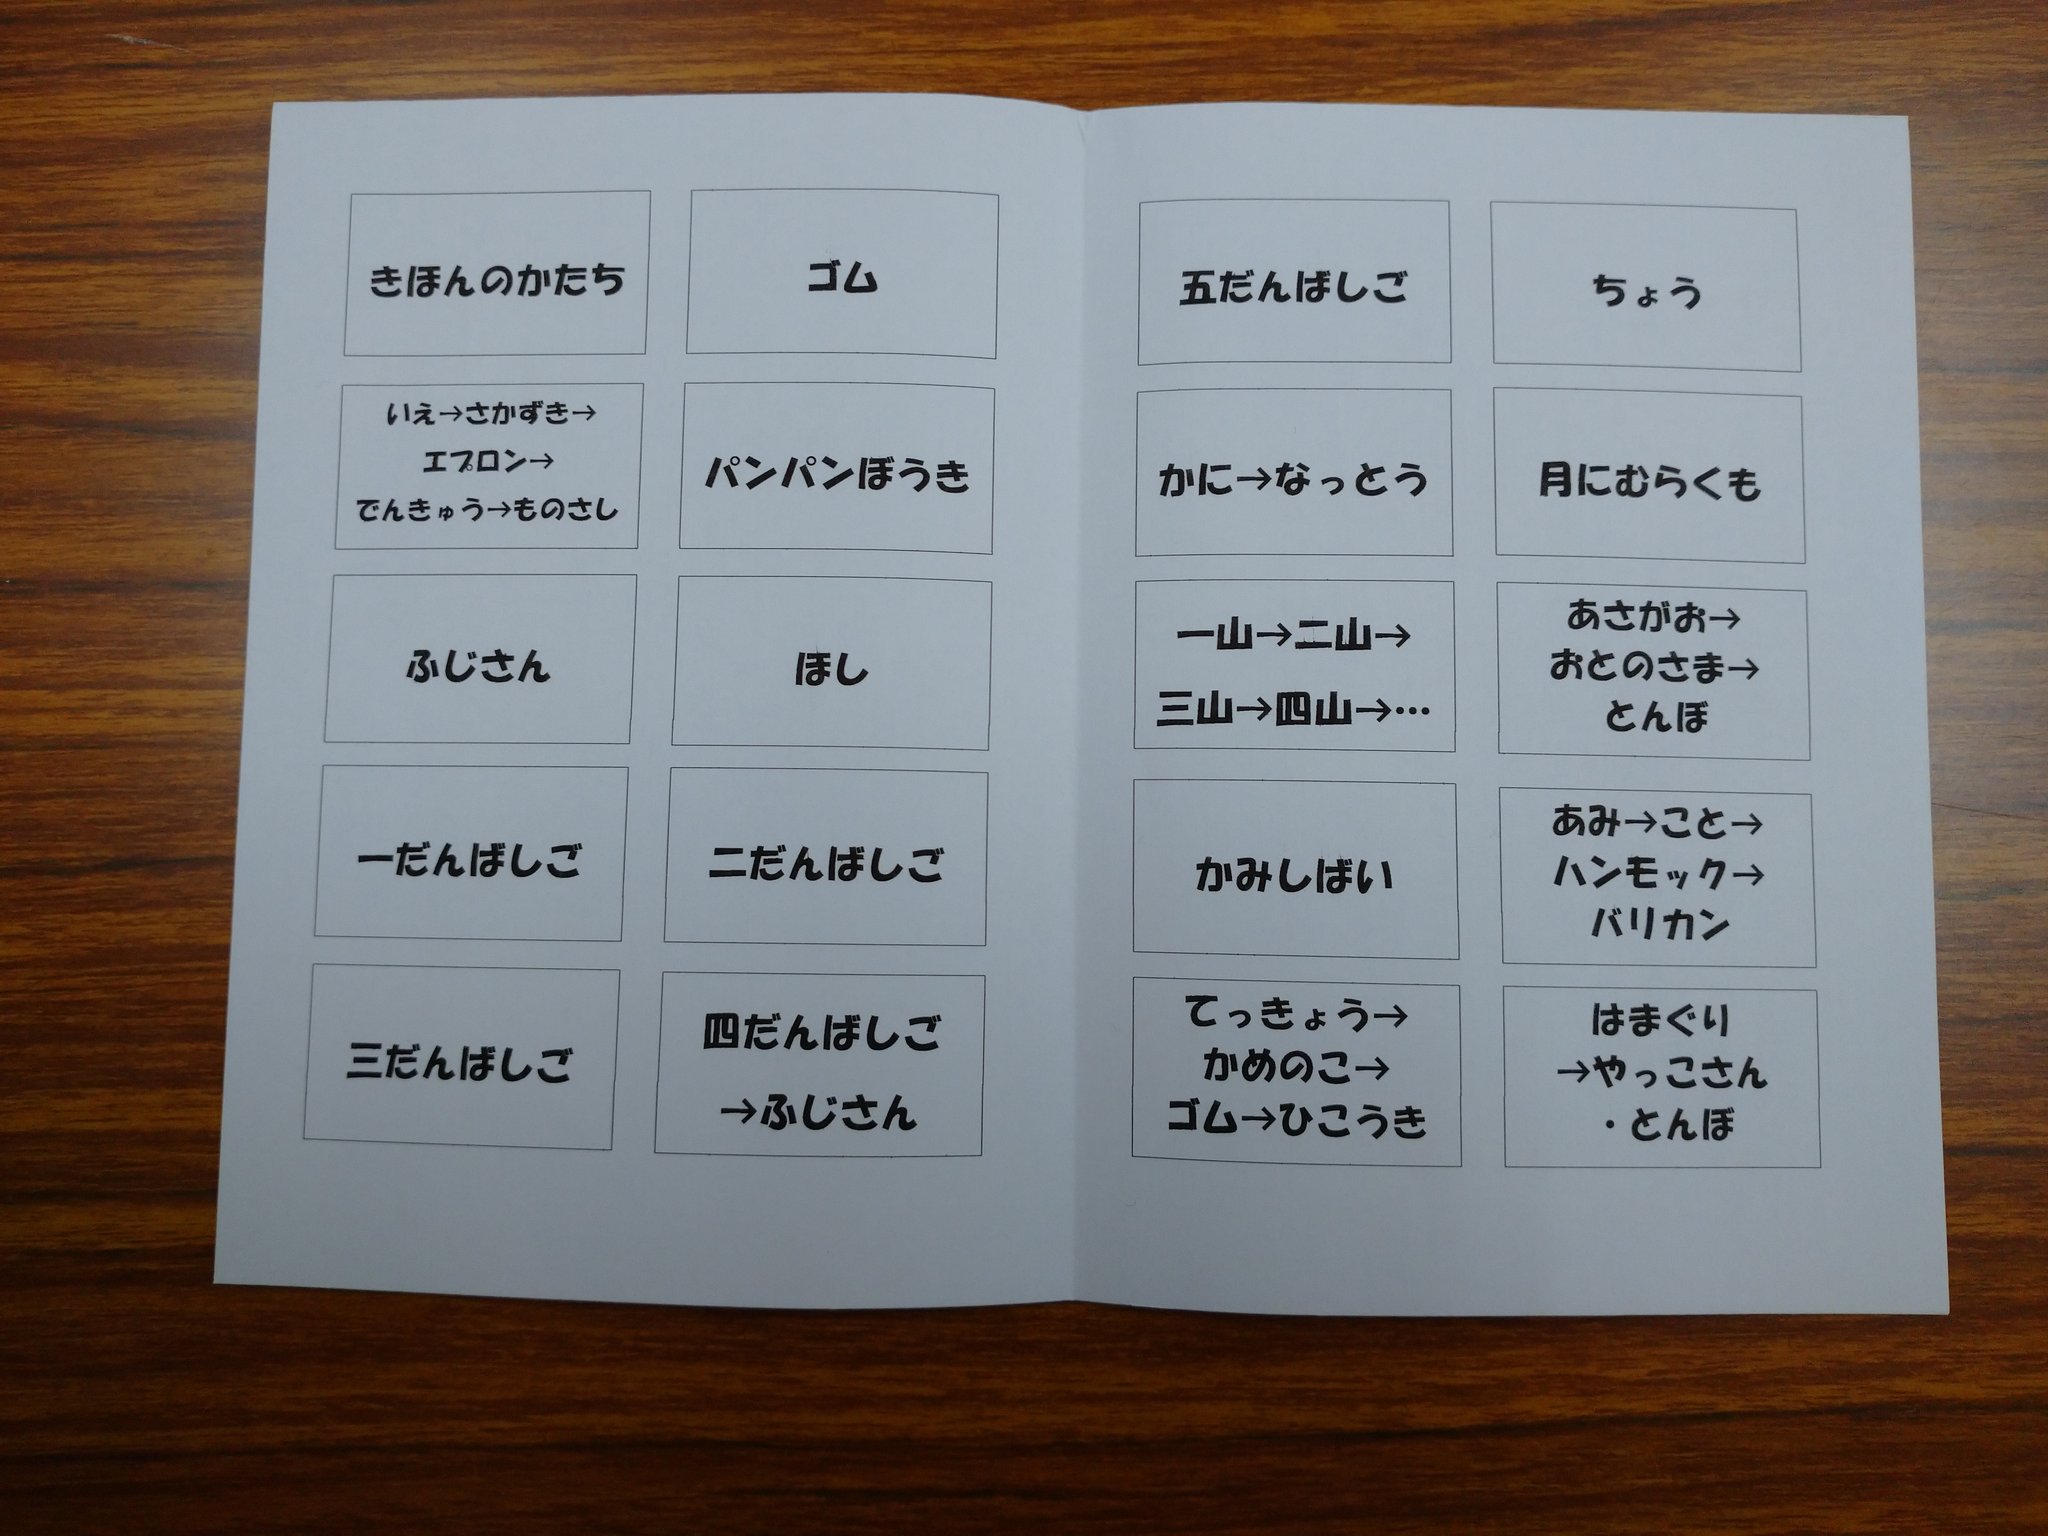 きほんのかたち
ゴム
いえ→さかずき→
エプロン→
でんきゅう→ものさし
パンパンぼうき
ふじさん
ほし
一だんばしご
二だんばしご
三だんばしご
四だんばしご
→ふじさん
五だんばしご
ちょう
かに→なっとう
月にむらくも
一山→二山→
三山→四山→…
あさがお→
おとのさま→
とんぼ
かみしばい
あみ→こと→
ハンモック→
バリカン
てっきょう→
かめのこ→
ゴム→ひこうき
はまぐり
→やっこさん
・とんぼ